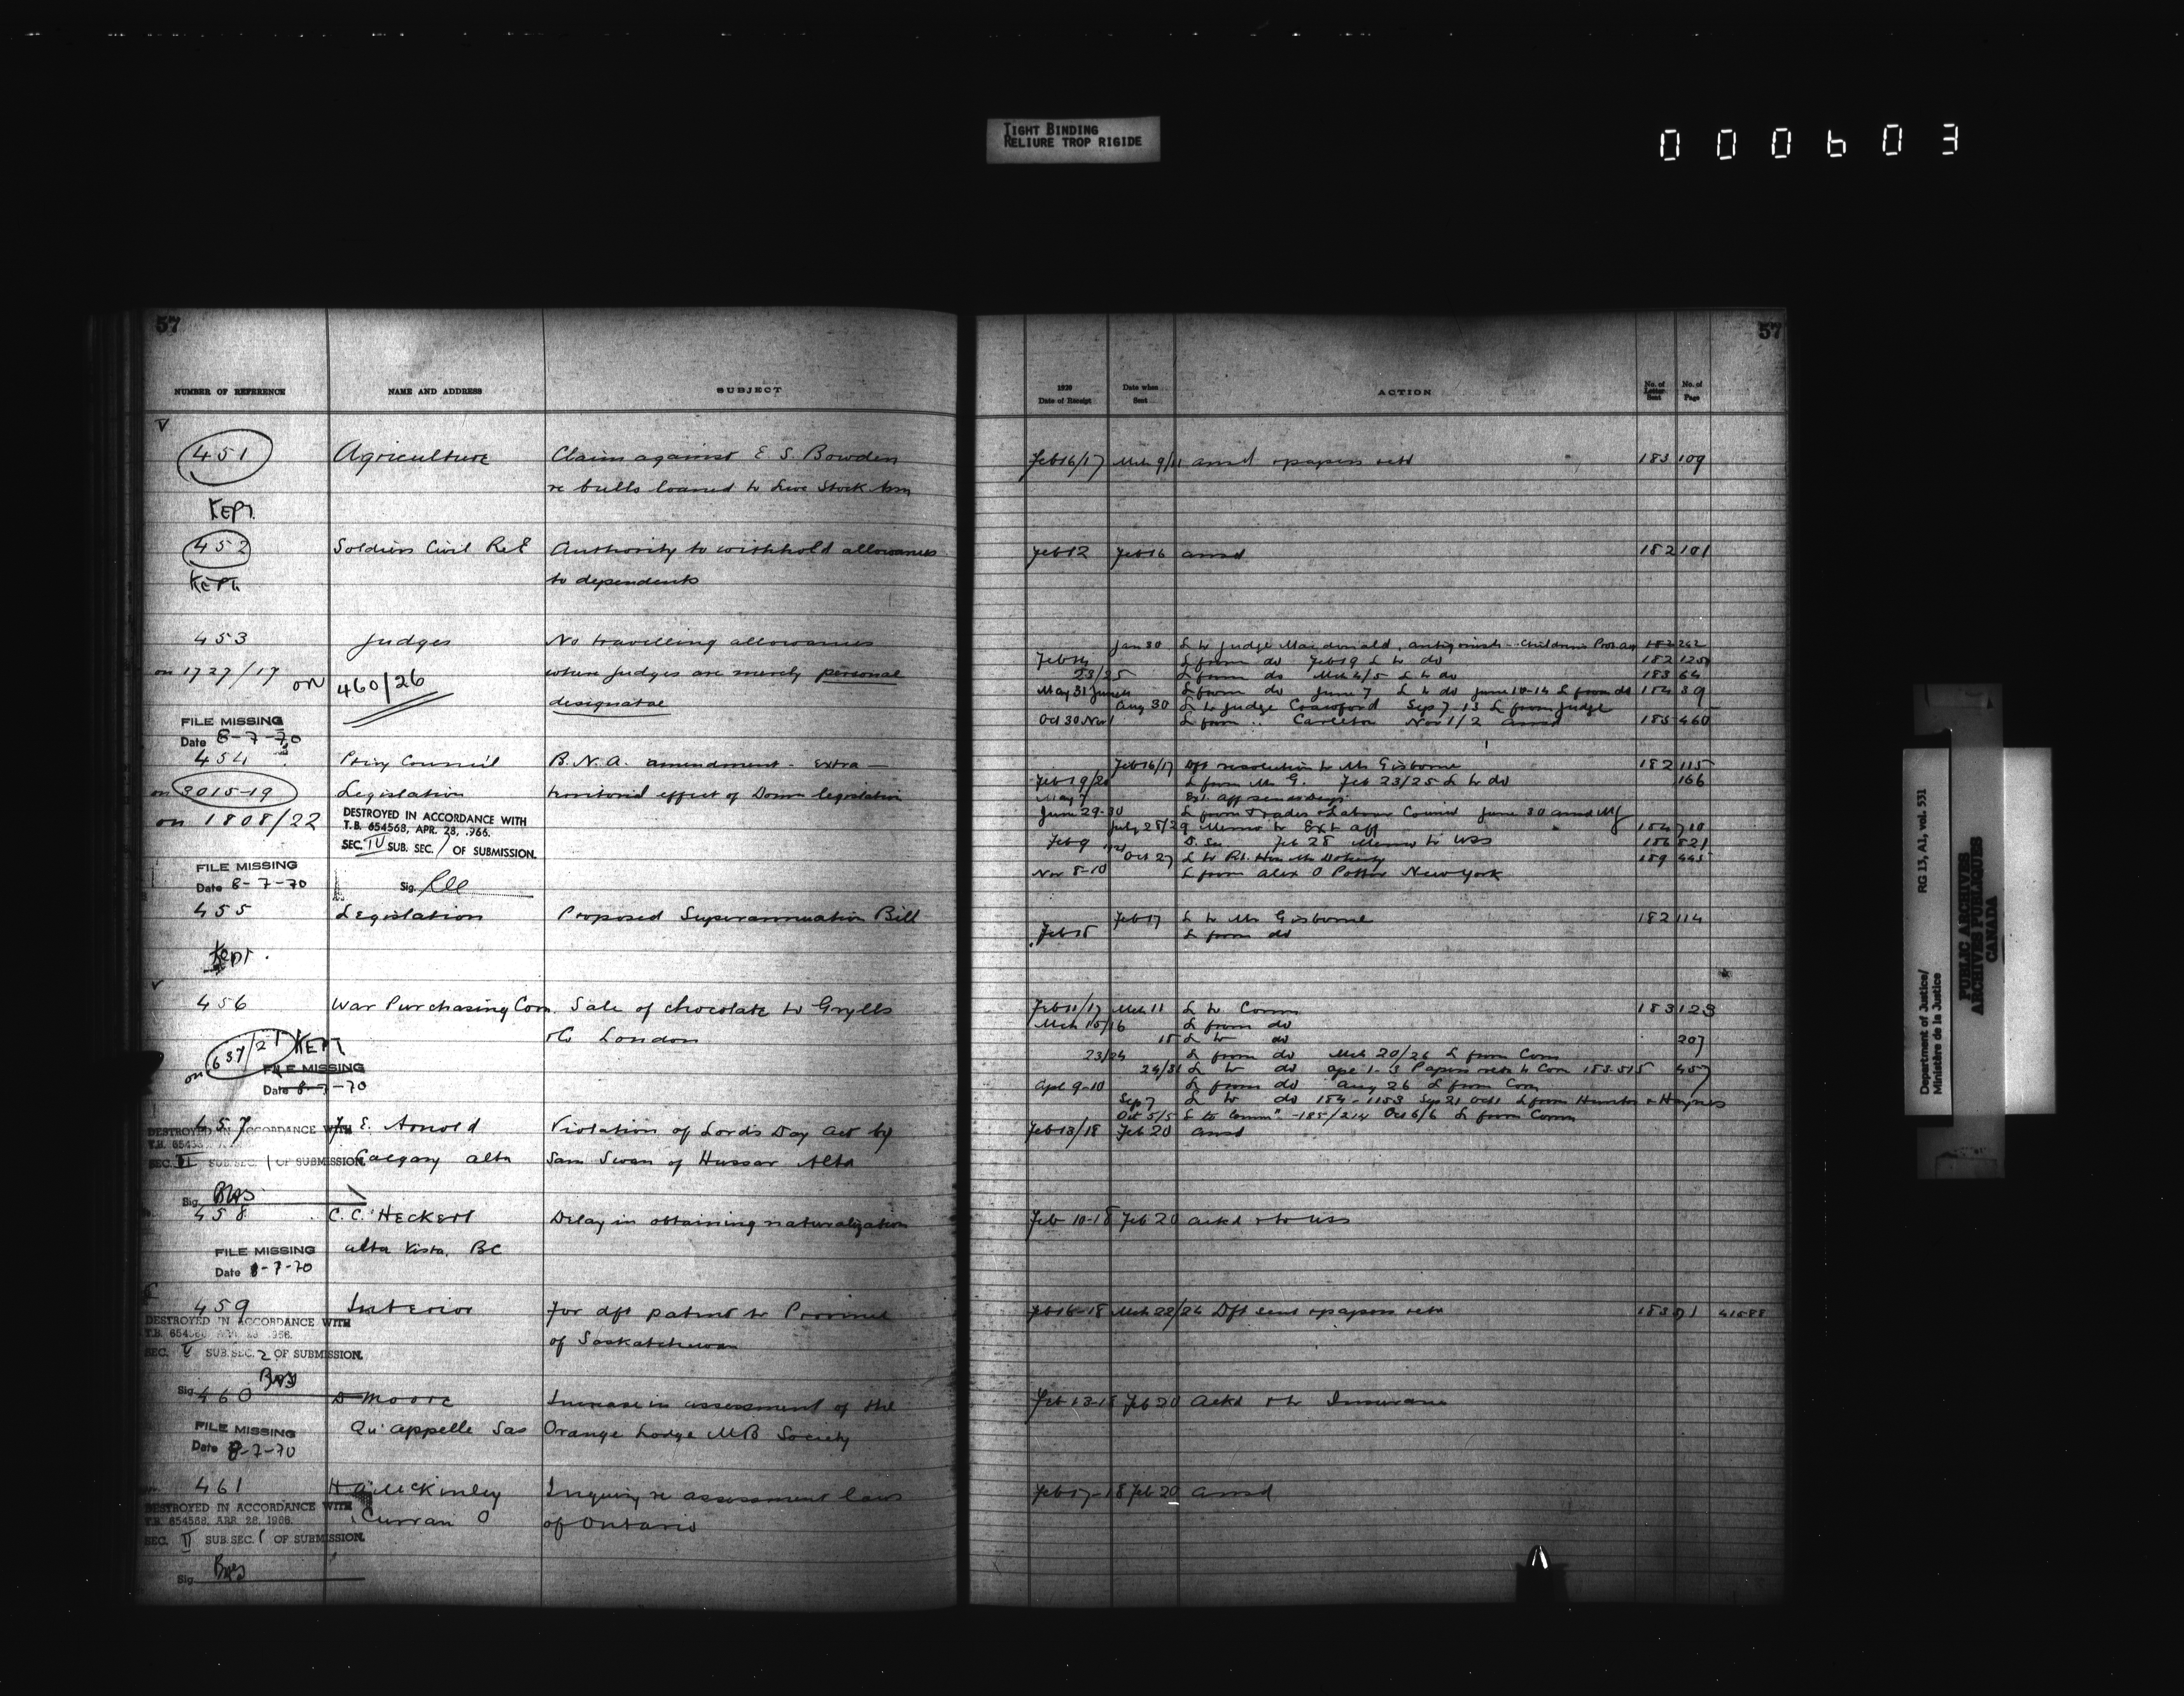 TIGHT BINDING
RELIURE TROP RIGIDE
000603
57
NUMBER OF REFERENCE NAME AND ADDRESS SUBJECT
451 Agriculture Claim against E. S. Bowden
re bulls loaned to Live Stock Assn
KEPT
452 Soldiers Civil Re E Authority to withhold allowances
KEPT to dependents
453 Judges No travelling allowances
on 1727/17 on 460/26 where judges are merely personal
designatae
FILE MISSING
Date 8-7-70
454 Privy Council B.N.A. amendment - Extra -
on 3015-19 Legislation territorial effect of Domn legislation
on 1808/22 DESTROYED IN ACCORDANCE WITH
T.B. 654568, APR. 28, .966.
SEC. IV SUB. SEC. / OF SUBMISSION.
FILE MISSING
Date 8-7-70 Sig.
455 Legislation Proposed Superannuation Bill
Kept.
456 War Purchasing Com. Sale of chocolate to Grylls
& Co London
on 637/21 KEPT
FILE MISSING
Date 8-7-70
457 J. E. Arnold Violation of Lord's Day Act by
DESTROYED IN ACCORDANCE WITH
SEC. II SUB. SEC. 1 OF SUBMISSION. Calgary Alta Sam Swan of Hussar Alta
Sig.
458 C. C. Heckert Delay in obtaining naturalization
Alta Vista, BC
FILE MISSING
Date 8-7-70
459 Interior For dft patent to Province
DESTROYED IN ACCORDANCE WITH
of Saskatchewan
SEC. V SUB. SEC. 2 OF SUBMISSION.
Sig.
460 D Moore Increase in assessment of the
FILE MISSING Qu'appelle Sas Orange Lodge MB Society
Date 8-7-70
461 H A McKinley Inquiry re assessment laws
DESTROYED IN ACCORDANCE WITH
T.B. 654568, APR. 28, 1966. Curran O of Ontario
SEC. II SUB. SEC. 1 OF SUBMISSION.
Sig.
57
1920
Date of Receipt Date when Sent ACTION No. of Letter Sent No. of Page
Feb 16/17 Mch 9/11 ansd & papers retd 183 109
Feb 12 Feb 16 ansd 182 101
Jan 30 L to Judge Macdonald, Antigonish Children's Prot Act 182 262
L from do Feb 19 L to do 182 125
23/25 L from do Mch 4/5 L to do 183 64
May 31 June L from do June 7 L to do June 10-14 L from do 184 39
Aug 30 L to Judge Crawford Sep 7 13 L from Judge
Oct 30 Nov 1 L from Carleton Nov 1/2 ansd 185 460
Feb 16/17 Dft resolution to Mr Gisborne 182 115
Feb 19/20 L from Mr G. Feb 23/25 L to do 166
May 7 Ext. Aff
June 29-30 L from Trades & Labour Council June 30 ansd
July 28/29 Memo to Ext Aff 184 710
Feb 9 Feb 28 Memo to USS 186 821
Oct 27 L to Rt. Hon Mr Doherty 189 445
Nov 8-10 L from Alex O Potter New York
Feb 17 L to Mr Gisborne 182 114
Feb 18 L from do
Feb 11/17 Mch 11 L to Comm 183 123
Mch 15/16 L from do
18 L to do 207
23/24 L from do Mch 20/26 L from Com
24/31 L to do Apl 1-3 Papers retd to Com 183-515 457
Apl 9-10 L from do Aug 26 L from Com
Sep 7 L to do 184-1153 Sep 21 Oct 1 L from Hunter & Haynes
Oct 5/5 L to Commn -185/214 Oct 6/6 L from Comm
Feb 13/18 Feb 20 ansd
Feb 10-18 Feb 20 ackd & to USS
Feb 16-18 Mch 22/24 Dft sent & papers retd 183 91 41588
Feb 13-18 Feb 20 Ackd & to Insurance
Feb 17-18 Feb 20 ansd
Department of Justice/
Ministère de la Justice
RG 13, A1, vol. 531
PUBLIC ARCHIVES
ARCHIVES PUBLIQUES
CANADA